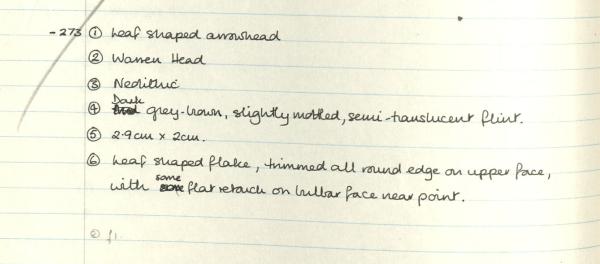 -273 ① Leaf shaped arrowhead
② Warren Head
③ Neolithic
④ Dark grey-brown, slightly mottled, semi-translucent flint.
⑤ 2.9cm x 2cm.
⑥ Leaf shaped flake, trimmed all round edge on upper face,
with some flat retouch on bulbar face near point.